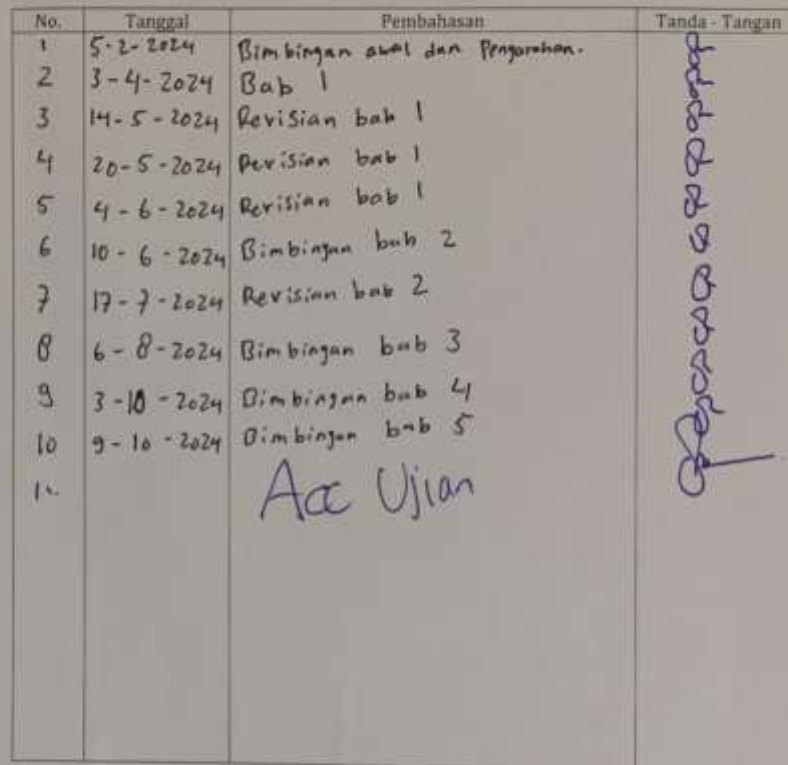 No. Tanggal Pembahasan Tanda - Tangan
1 5-2-2024 Bimbingan awal dan Pengarahan.
2 3-4-2024 Bab 1
3 14-5-2024 Revisian bab 1
4 20-5-2024 Revisian bab 1
5 4-6-2024 Revisian bab 1
6 10-6-2024 Bimbingan bab 2
7 17-7-2024 Revisian bab 2
8 6-8-2024 Bimbingan bab 3
9 3-10-2024 Bimbingan bab 4
10 9-10-2024 Bimbingan bab 5
Acc Ujian